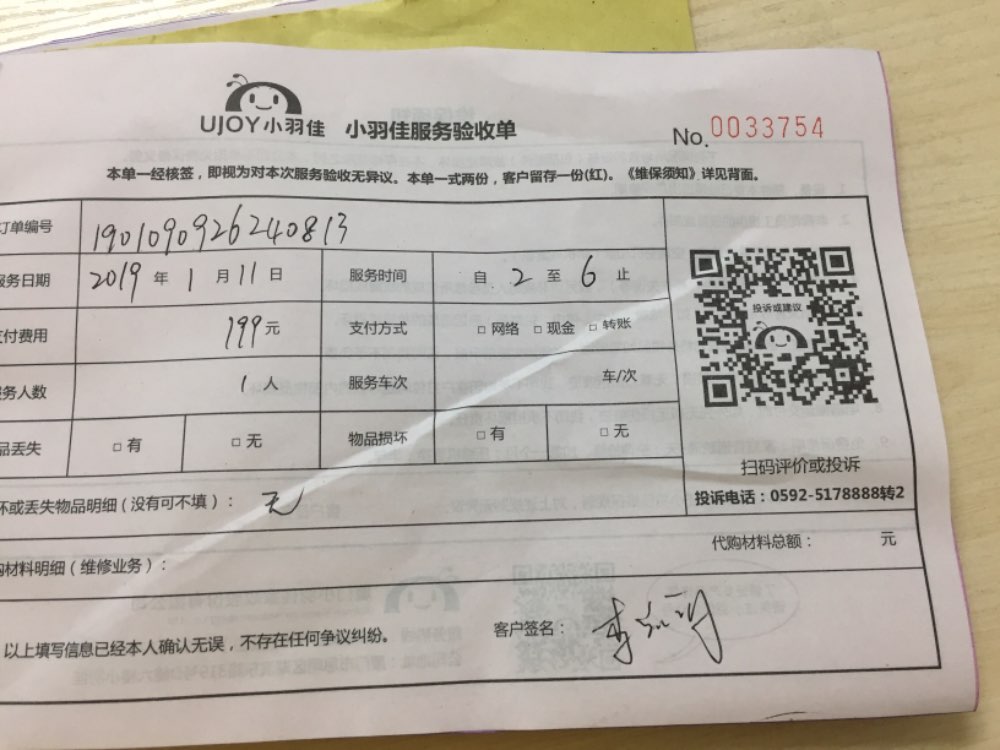 UJOY小羽佳 小羽佳服务验收单
No.0033754
本单一经核签，即视为对本次服务验收无异议。本单一式两份，客户留存一份(红)。《维保须知》详见背面。
订单编号 1901090926240813
服务日期 2019 年 1 月 11 日 服务时间 自 2 至 6 止
支付费用 199元 支付方式 □ 网络 □ 现金 □ 转账
服务人数 1 人 服务车次 车/次
物品丢失 □ 有 □ 无 物品损坏 □ 有 □ 无
投诉或建议
扫码评价或投诉
投诉电话：0592-5178888转2
坏或丢失物品明细 (没有可不填)： 无
代购材料总额： 元
购材料明细 (维修业务)：
以上填写信息已经本人确认无误，不存在任何争议纠纷。
客户签名： 李